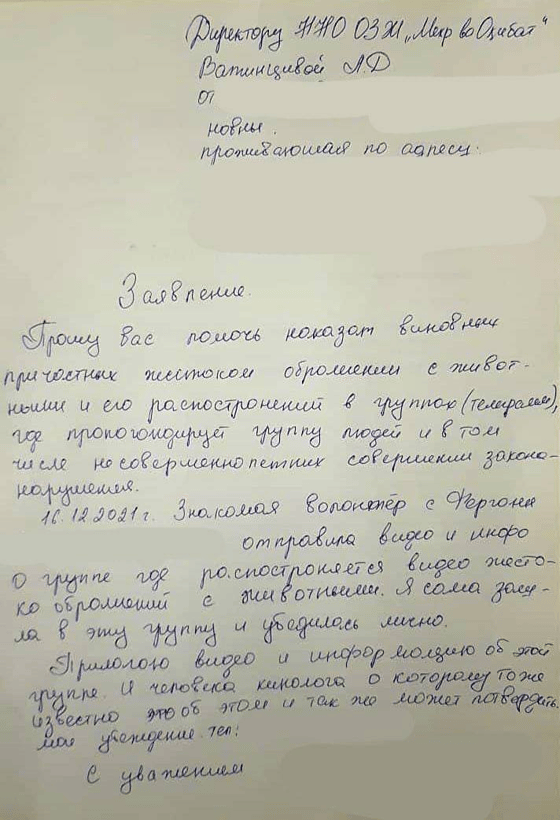 Директору ННО ОЗЖ „Мехр ва Оқибат“
Ватинцивой Л.Д
от
новны.
проживающая по адресу:
Заявление.
Прошу вас помочь наказат виновных
причастных жестоком оброщении с живот-
ными и его распостронений в группах (телеграмм),
где пропогондирует группу людей и в том
числе несовершеннолетних совершении законо-
нарушения.
16.12.2021г. Знакомая волонтёр с Ферганы
отправила видео и инфо
о группе где распостроняется видео жесто-
ко оброщений с животными. Я сама зашу-
ла в эту группу и убедилась лично.
Прилогою видео и информацию об этой
группе. И человека кинолога о котораму тоже
известно это об этом и так же может потвердить.
мои убеждение. тел:
С уважением